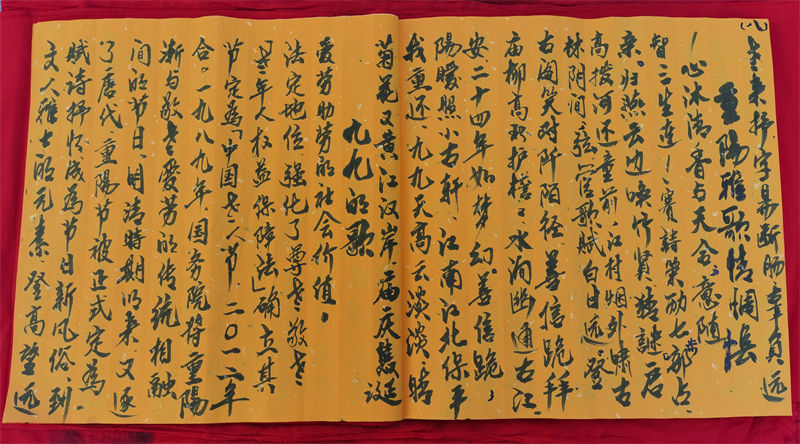 文人雅士的元素 登高望远
赋诗抒怀成為节日新风俗、到
了唐代、重陽节被正式定為
间的节日、明清時期以来、又逐
渐与敬老爱劳的传统相融
合。一九八九年国务院将重陽
节定為「中国老人节、二〇一二年
老年人权益保障法」确立其
法定地位、强化了尊老敬老
爱劳助劳的社会价值。
九九的歌
菊花又黄江汉岸庙庆
我重还、九九天高云淡淡晴
陽暖照小古轩、江南江北保平
安二十四年如梦幻、善信跪、
庙柳高歌护水润幽通古江
右闹笑对阡陌径、善信跪拜
林阴间弦管歌赋白日远、登
高拨河还童前、江村烟外啸古
归燕云边唤竹贤、猜謎居
智二生连一赛詩笑酌七部占
一心沐清香与天合、意随
重陽雅歌情惆悵
(八)来抒字易断肠